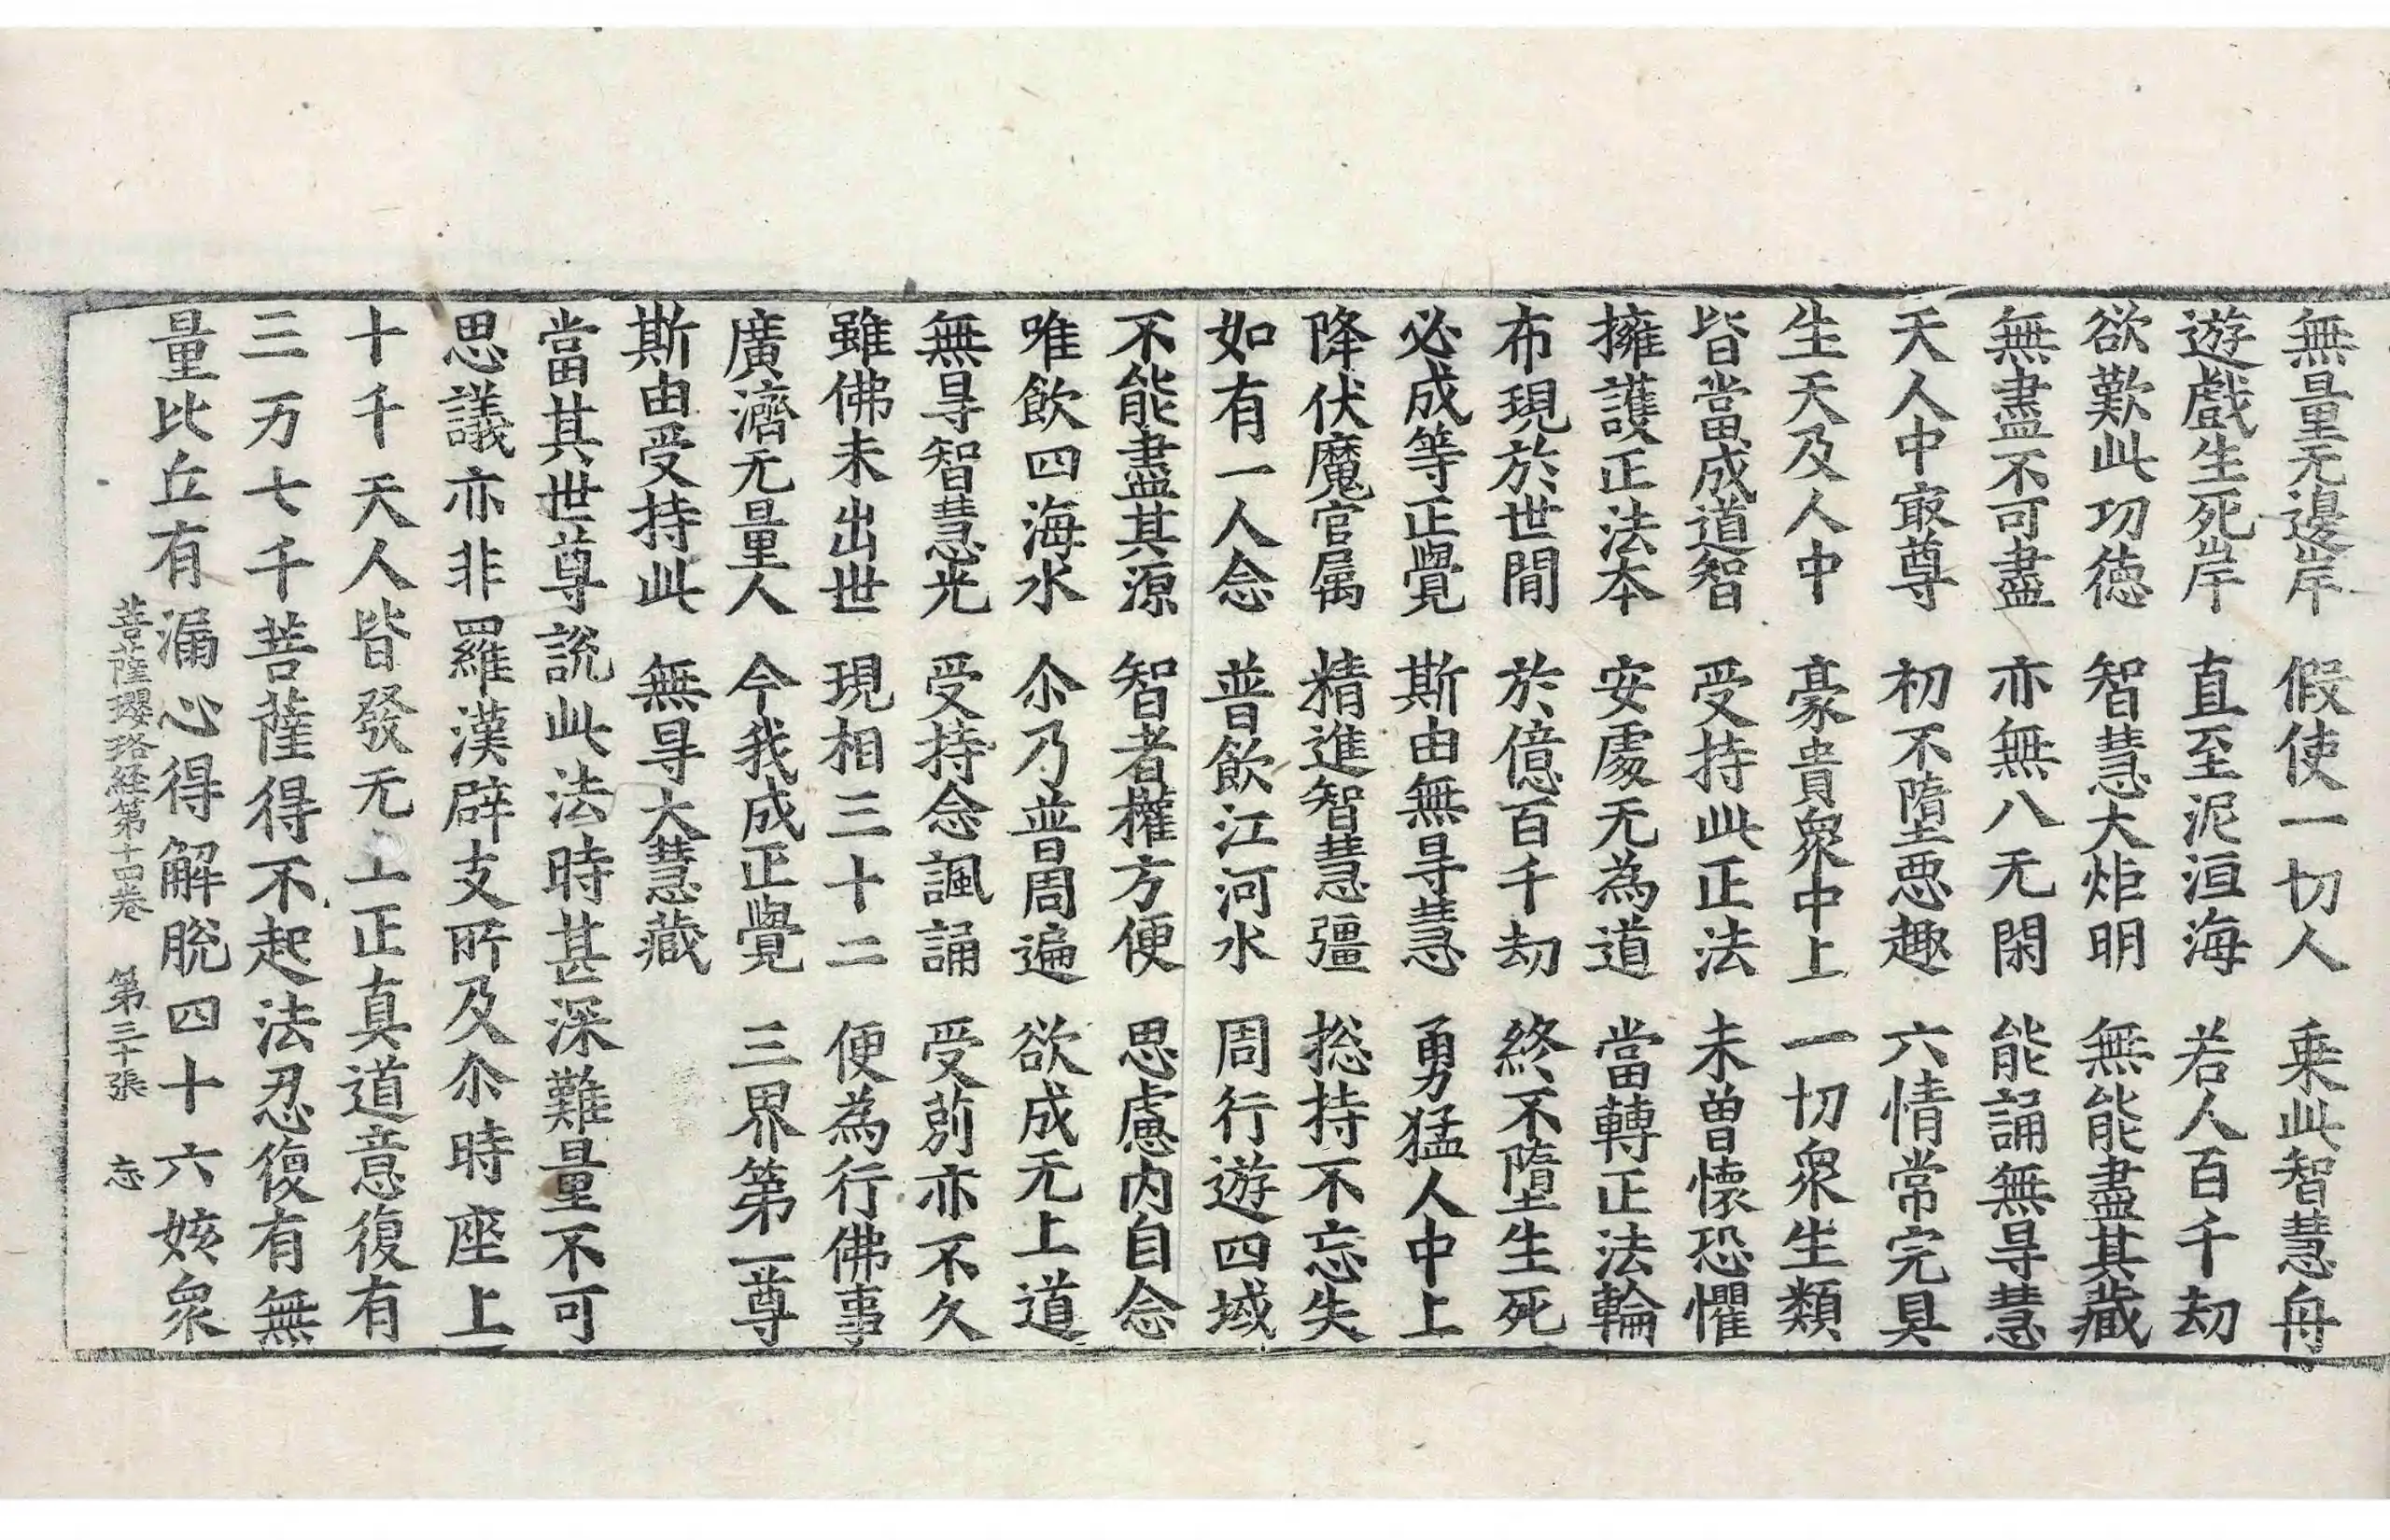 無量无邊岸　假使一切人　乘此智慧舟
遊戲生死岸　直至泥洹海　若人百千劫
欲歎此功德　智慧大炬明　無能盡其藏
無盡不可盡　亦無八无閑　能誦無㝵慧
天人中㝡尊　初不墮悪趣　六情常完具
生天及人中　豪貴衆中上　一切衆生類
皆當成道智　受持此正法　未曽懷恐懼
擁護正法本　安處无為道　當轉正法輪
布現於世間　於億百千劫　終不墮生死
必成等正覺　斯由無㝵慧　勇猛人中上
降伏魔官属　精進智慧彊　揔持不忘失
如有一人念　普飲江河水　周行遊四域
不能盡其源　智者權方便　思慮內自念
唯飲四海水　尒乃普周遍　欲成无上道
無㝵智慧光　受持念諷誦　受莂亦不久
雖佛未出世　現相三十二　便為行佛事
廣濟无量人　今我成正覺　三界第一尊
斯由受持此　無㝵大慧藏
當其世尊說此法時甚深難量不可
思議亦非羅漢辟支所及尒時座上
十千天人皆發无上正真道意復有
三万七千菩薩得不起法忍復有無
量比丘有漏心得解脫四十六姟衆
菩薩瓔珞経第十四卷　第三十張　忘